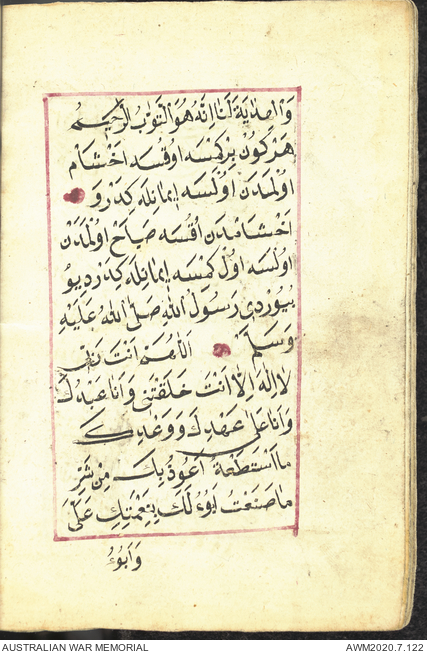 وَاهْدِيَةً لَنَا اِنَّهُ هُوَ التَّوَّابُ الرَّحٖيمُ
هَرْكُونْ بِرْكِمْسَه اوُقُسَه اَخْشَامْ
اوُلْمَدَنْ اوُلْسَه اِيمَانِلَه كِدَرْ وَ
اَخْشَامْدَنْ اُقُسَه صَبَاحْ اوُلْمَدَنْ
اوُلْسَه اوُلْ كِمْسَه اِيمَانِلَه كِدَرْ دِيُو
بُيُورْدِى رَسُولُ اللهِ صَلَّى اللهُ عَلَيْهِ
وَسَلَّمْ اَللّٰهُمَّ اَنْتَ رَبِّى
لَا اِلٰهَ اِلَّا اَنْتَ خَلَقْتَنِى وَاَنَا عَبْدُكَ
وَاَنَا عَلَى عَهْدِكَ وَوَعْدِكَ
مَا اسْتَطَعْتُ اَعُوذُ بِكَ مِنْ شَرِّ
مَا صَنَعْتُ اَبُوءُ لَكَ بِنِعْمَتِكَ عَلَىَّ
وَاَبُوءُ
AUSTRALIAN WAR MEMORIAL AWM2020.7.122